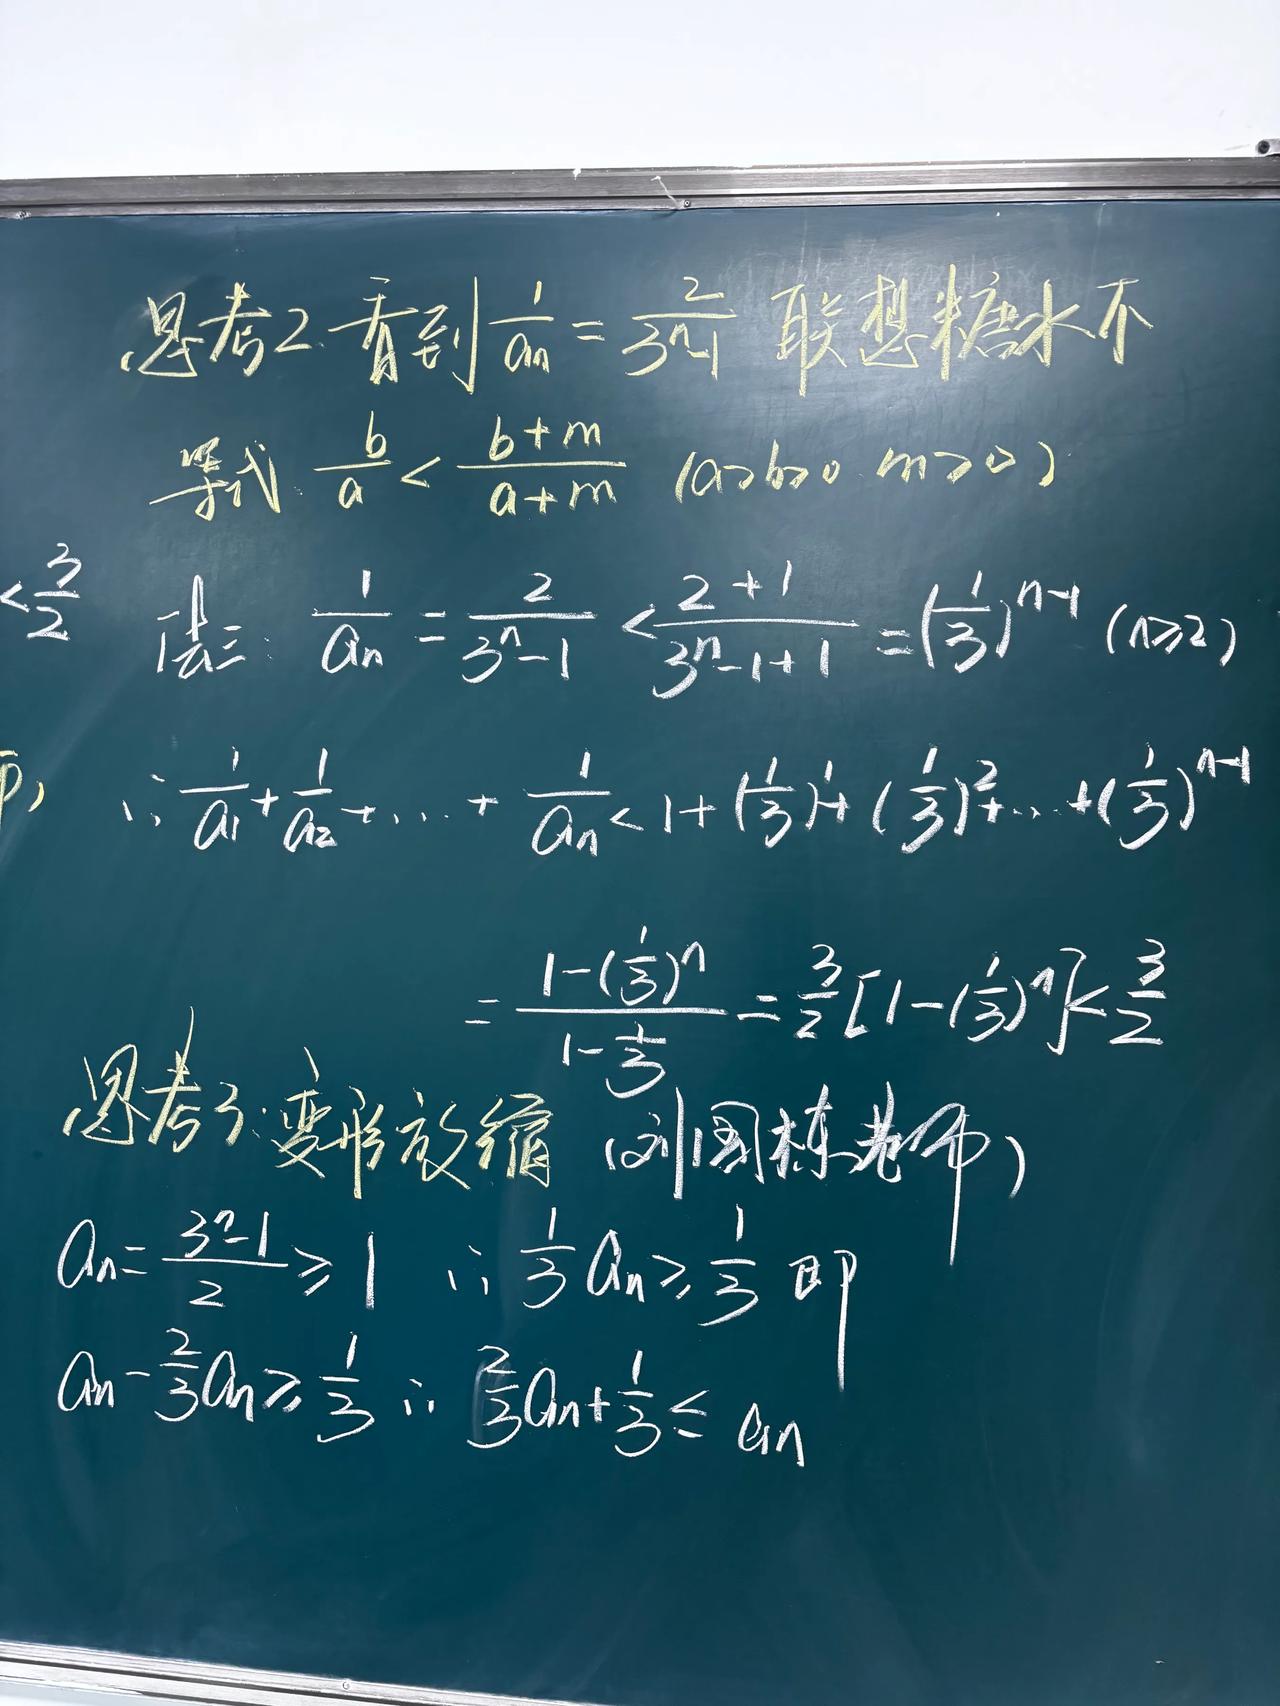 思考2 看到 1/an = 2/(3^n-1) 联想糖水不
等式: b/a < (b+m)/(a+m) (a>b>0 m>0)
<3/2
法三: 1/an = 2/(3^n-1) < (2+1)/(3^n-1+1) = (1/3)^(n-1) (n≥2)
师)
∴ 1/a1 + 1/a2 + ... + 1/an < 1 + (1/3)^1 + (1/3)^2 + ... + (1/3)^(n-1)
= (1-(1/3)^n)/(1-1/3) = 3/2[1-(1/3)^n] < 3/2
思考3: 变形放缩 (刘国栋老师)
an = (3^n-1)/2 ≥ 1 ∴ 1/3 an ≥ 1/3 即
an - 2/3 an ≥ 1/3 ∴ 2/3 an + 1/3 ≤ an